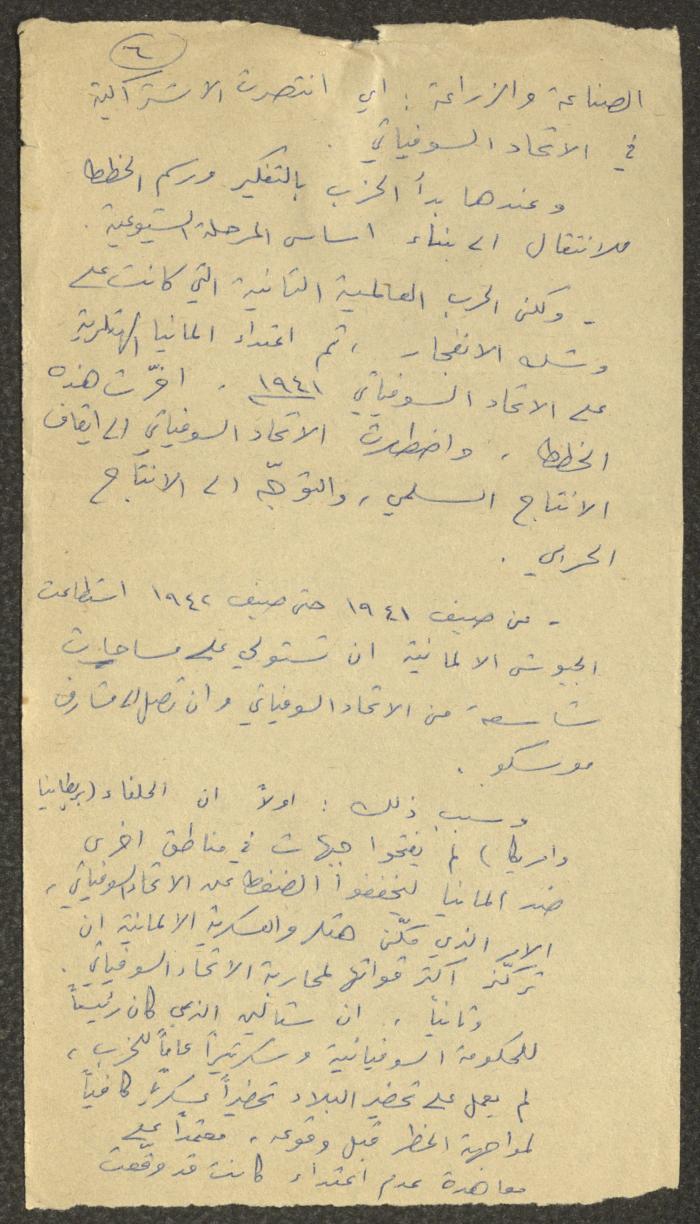 ٦
الصناعة والزراعة : اي انتصرت الاشتراكية
في الاتحاد السوفياتي .
وعندها بدأ الحزب بالتفكير ورسم الخطط
للانتقال الى بناء اساس المرحلة الشيوعية .
- ولكن الحرب العالمية الثانية التي كانت على
وشك الانفجار ، ثم اعتداء المانيا الهتلرية
على الاتحاد السوفياتي ١٩٤١ ، اخّرت هذه
الخطط ، واضطرت الاتحاد السوفياتي الى ايقاف
الانتاج السلمي ، والتوجّه الى الانتاج
الحربي .
- من صيف ١٩٤١ حتى صيف ١٩٤٢ استطاعت
الجيوش الالمانية ان تستولي على مساحات
شاسعة من الاتحاد السوفياتي وان تصل الى مشارف
موسكو .
وسبب ذلك : اولاً ان الحلفاء (بريطانيا
وامريكا) لم يفتحوا جبهات في مناطق اخرى
ضد المانيا ليخففوا الضغط عن الاتحاد السوفياتي ،
الامر الذي مكّن هتلر والعسكرية الالمانية ان
تركّز اكثر قواتها لمحاربة الاتحاد السوفياتي .
وثانياً ، ان ستالين الذي كان رئيساً
للحكومة السوفياتية وسكرتيراً عاماً للحزب ،
لم يعمل على تحضير البلاد تحضيراً عسكرياً كافياً
لمواجهة الخطر قبل وقوعه ، معتمداً على
معاهدة عدم اعتداء كانت قد وقّعت